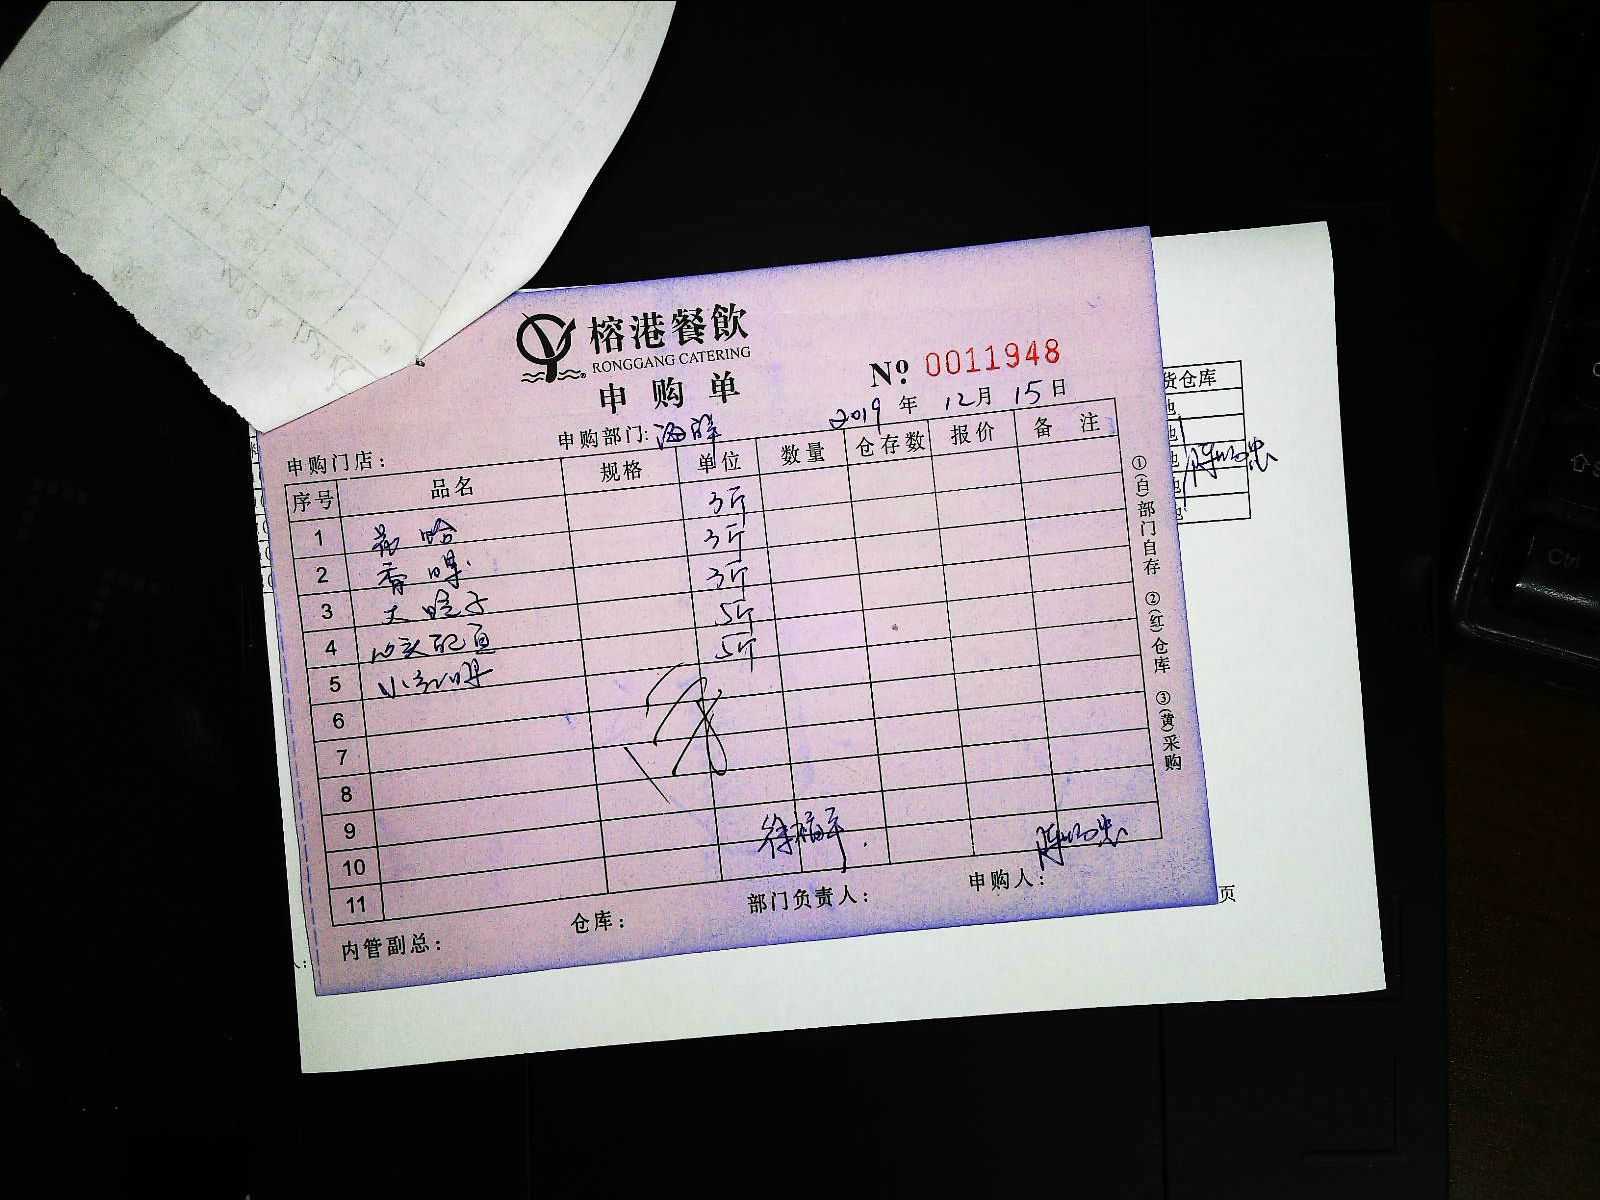 榕港餐飲
RONGGANG CATERING
申购单
№ 0011948
申购门店：
申购部门: 海鲜
2019 年 12 月 15 日
序号 品名 规格 单位 数量 仓存数 报价 备注
1 花哈 3斤
2 香螺 3斤
3 大蛏子 3斤
4 5斤
5 5斤
6
7
8
9
10
11
徐福平
内管副总：
仓库：
部门负责人：
申购人：
①(白)部门自存 ②(红)仓库 ③(黄)采购
货仓库
页
Ctrl